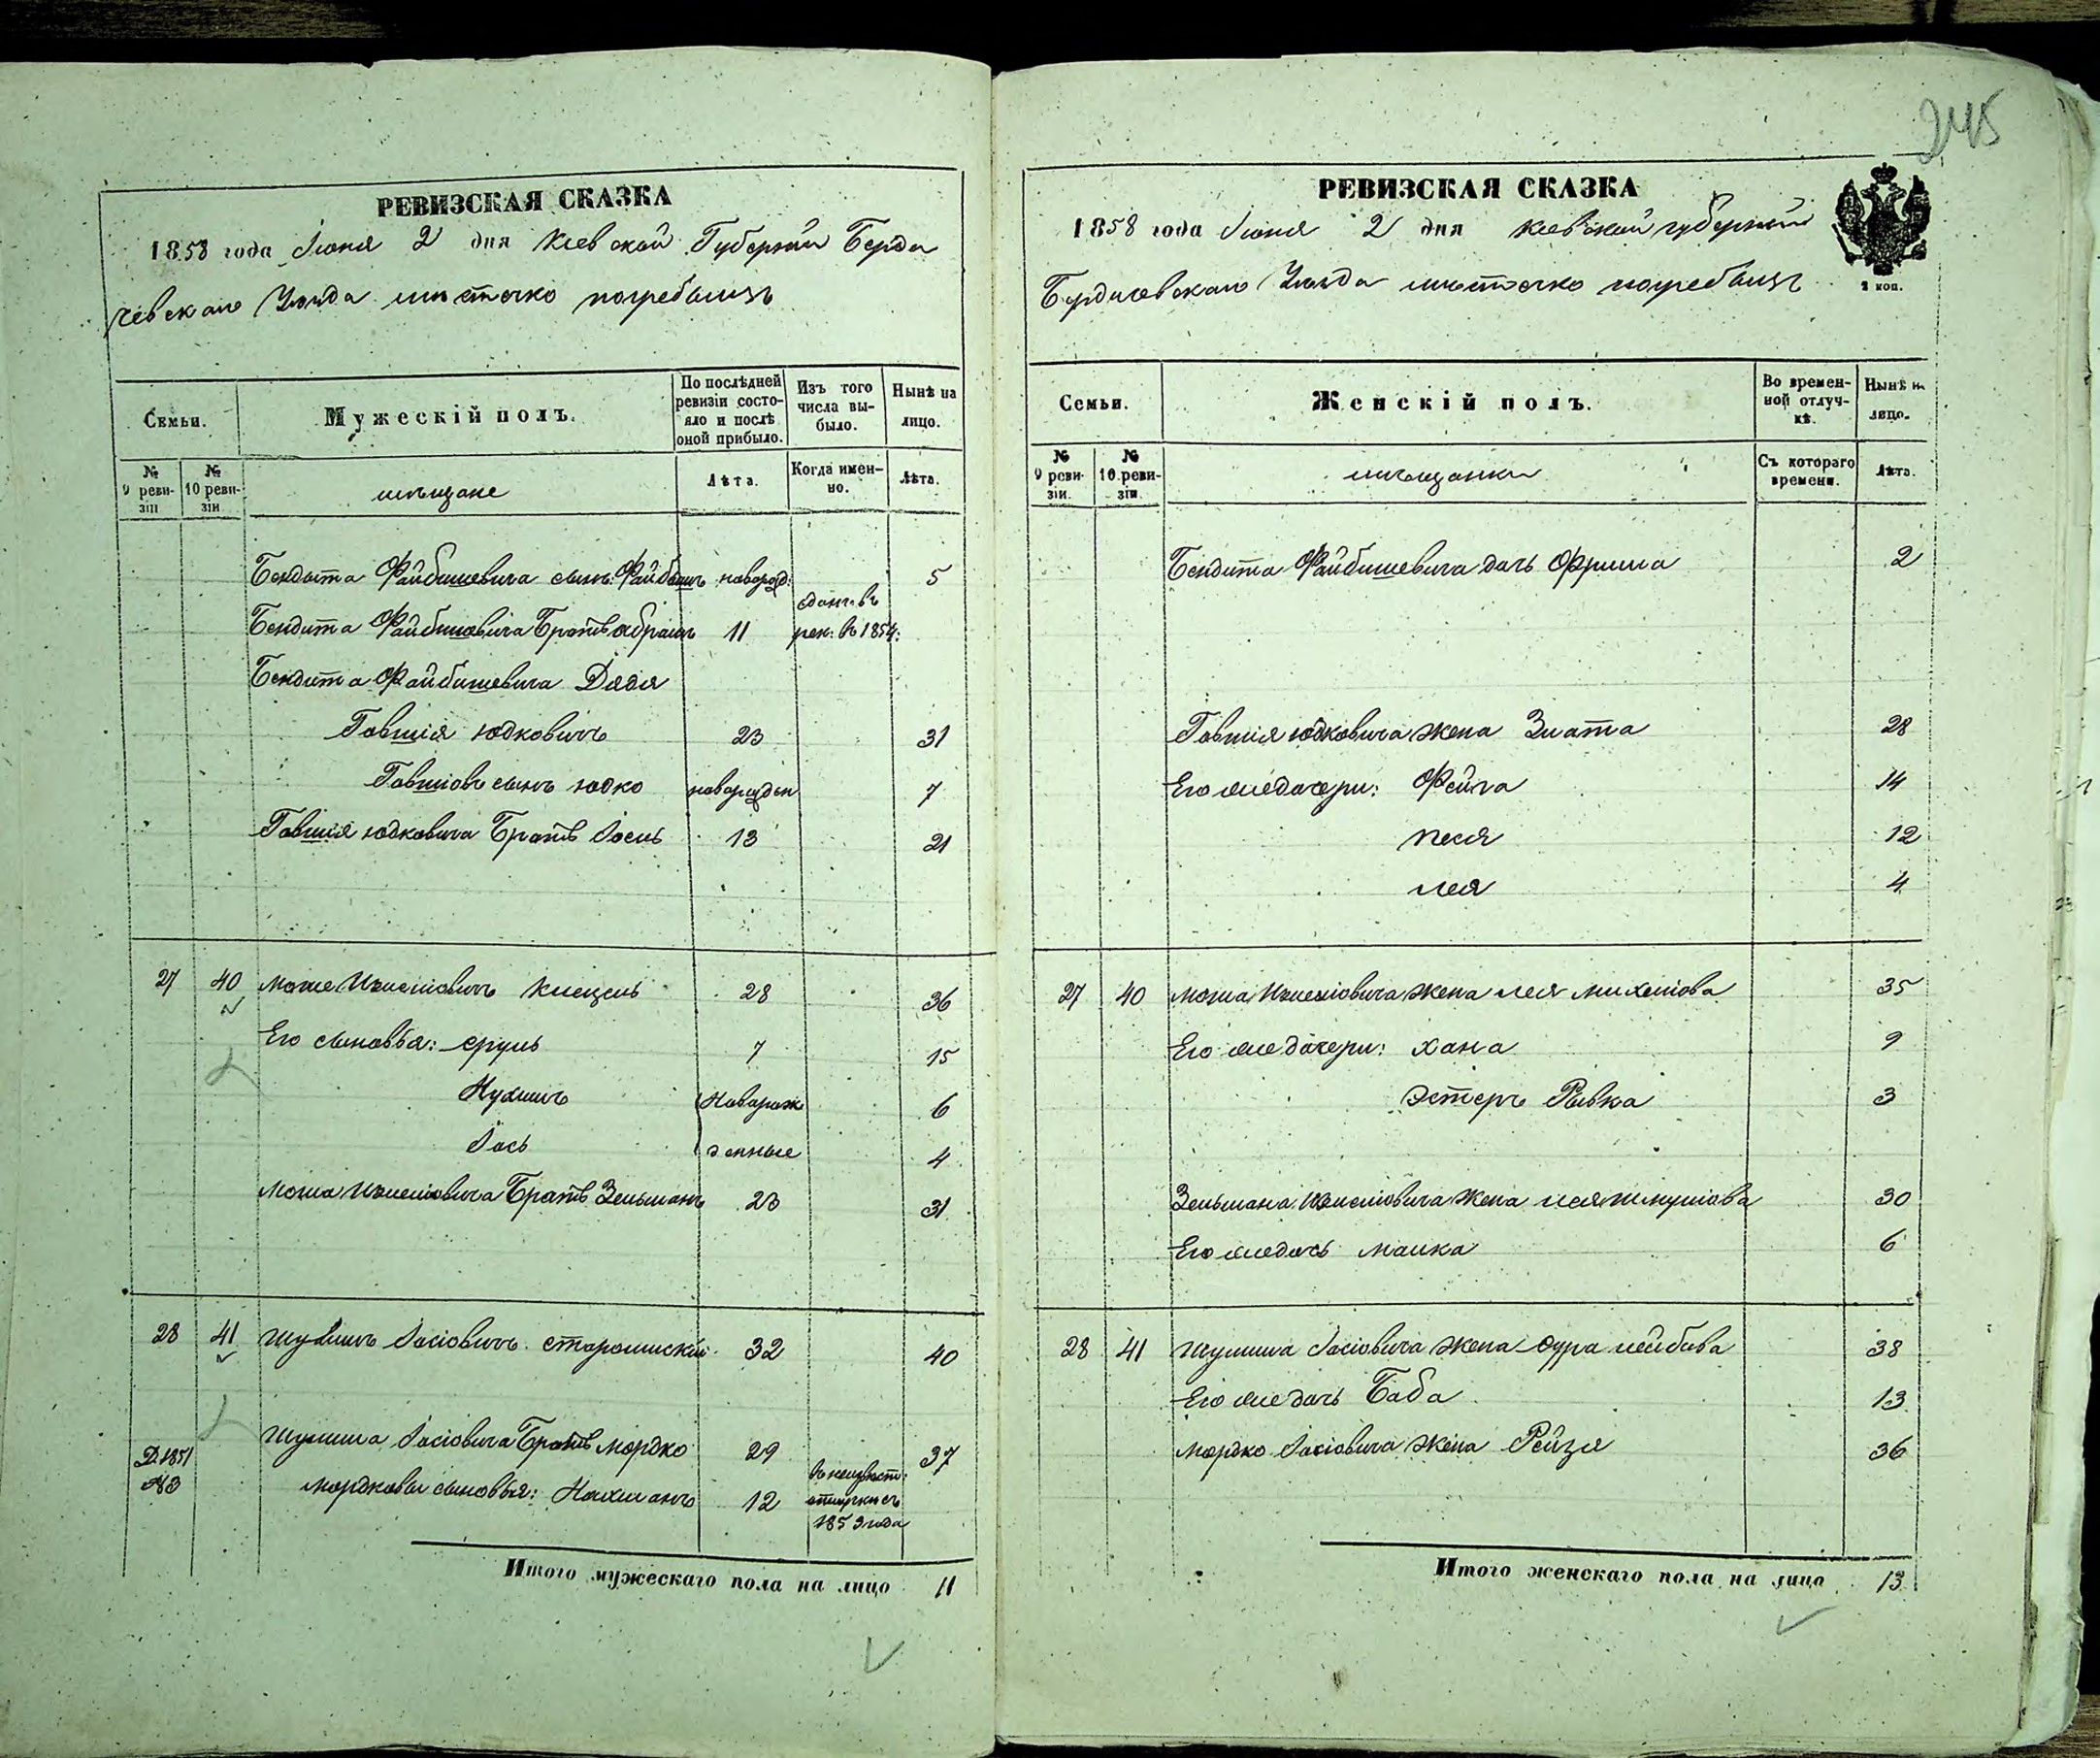 245
РЕВИЗСКАЯ СКАЗКА
1858 года Іюня 2 дня Кіевской Губерніи Берди
чевскаго Уѣзда мѣстечко погребыщь
Семьи.
Мужескій полъ.
По послѣдней ревизіи состояло и послѣ оной прибыло.
Изъ того числа выбыло.
Нынѣ на лицо.
№ 9 ревизіи
№ 10 ревизіи
мѣщане
Лѣта.
Когда именно.
Лѣта.
Бендита Файбишевича сынъ Файбишъ наворожд: 5
Бендита Файбишовича Братъ Абрамъ 11 сданъ въ рек: въ 1854:
Бендита Файбишевича Дядя
Говшія Юдковичъ 23 31
Говшіовъ сынъ Юдко наворожден 7
Говшія Юдковича Братъ Іосль 13 21
27 40 Моше Ицковичъ 28 36
Его сыновья: Сруль 7 15
Нухимъ Наворож 6
Іось денные 4
Братъ Зельманъ 23 31
28 41 Іосіовичъ 32 40
Шулима Іосіовича Братъ Мордко 29 37
Д. 1851
№3
Мордковы сыновья: Нахманъ 12 въ неизвѣст: отлучкѣ съ 1853 года
Итого мужескаго пола на лицо 11
РЕВИЗСКАЯ СКАЗКА
1858 года Іюня 2 дня Кіевской губерніи
Бердичевскаго Уѣзда мѣстечко погребыщь
2 коп.
Семьи.
Женскій полъ.
Во временной отлучкѣ.
Нынѣ на лицо.
№ 9 ревизіи.
№ 10 ревизіи
мѣщанки
Съ котораго времени.
Лѣта.
Бендита Файбишевича дочь Фрима 2
Говшія Юдковича жена Злата 28
Его же дочери: Фейга 14
Песя 12
Лея 4
27 40 Моша жена Лея Михелiова 35
Его же дочери: Хана 9
Эстеръ Рывка 3
Зельмана жена Лея Шмуліова 30
Его же дочь Малка 6
28 41 Шулима Іосіовича жена Сура Лейбова 38
Его же дочь Баба 13
Мордко Іосіовича жена Рейзя 36
Итого женскаго пола на лицо 13